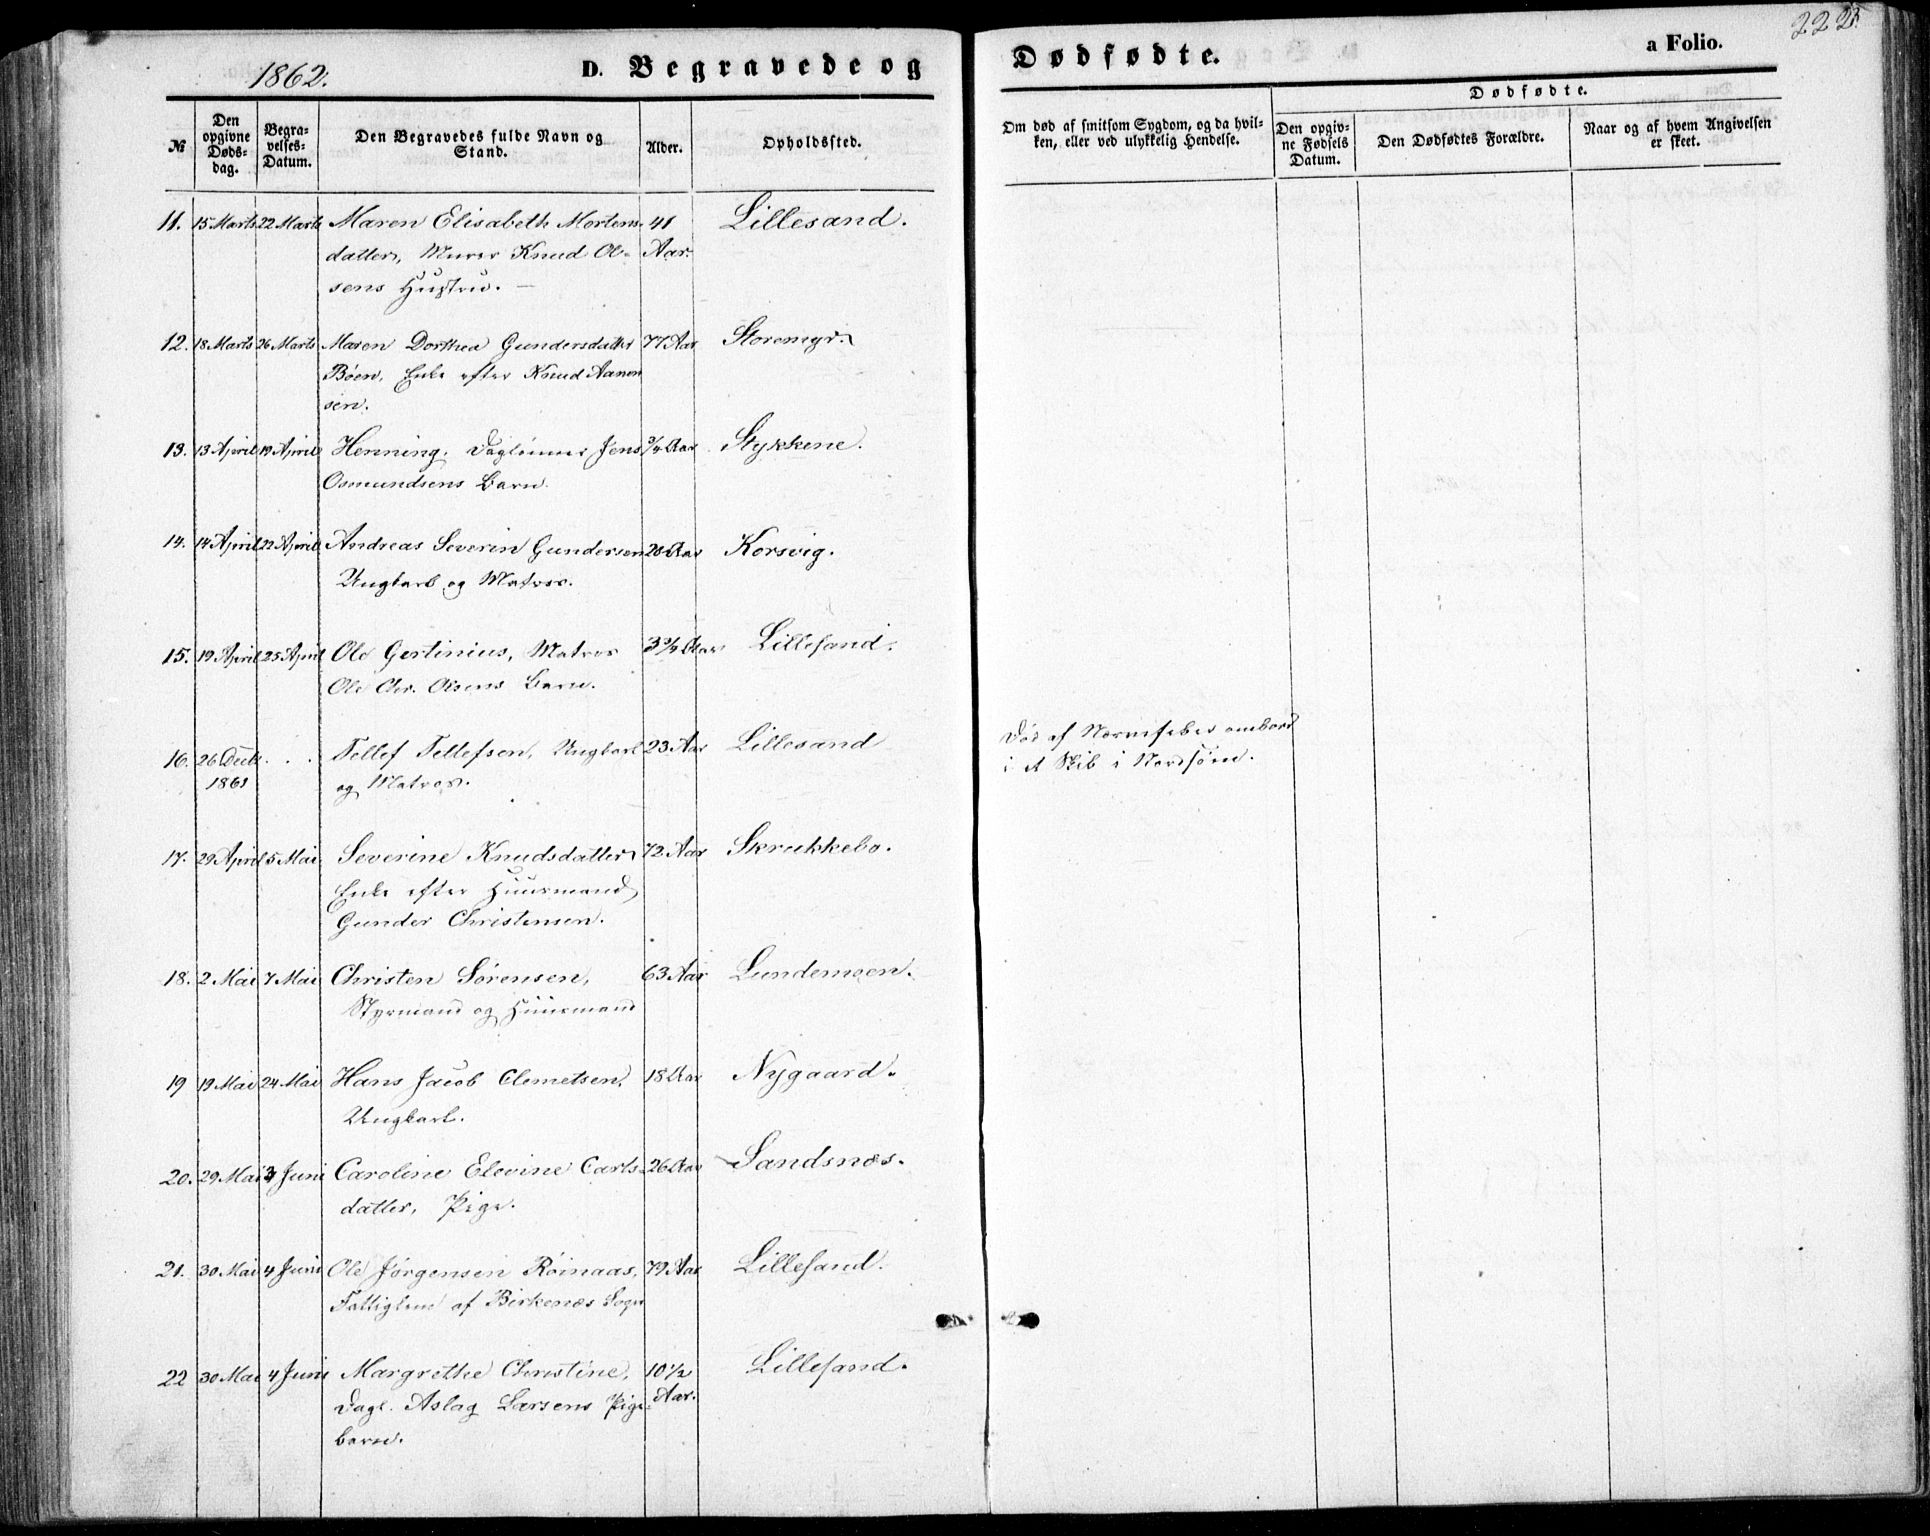 1862.
D. Begravede og Dødfødte.
a Folio.
222
№
Den opgivne Døds-dag.
Begra-velses-Datum.
Den Begravedes fulde Navn og Stand.
Alder.
Opholdssted.
Om død af smitsom Sygdom, og da hvil-ken, eller ved ulykkelig Hendelse.
Dødfødte.
Den opgiv-ne Fødsels Datum.
Den Dødfødtes Forældre.
Naar og af hvem Angivelsen er skeet.
11. 15 Marts 22 Marts Maren Elisabeth Mortens- 41 Lillesand.
datter, Murer Knud Ol- Aar.
sens Hustru. —
12. 18 Marts 26 Marts Maren Dorthea Gundersdatter 77 Aar Storemyr.
Bøen, Enke efter Knud Aanon
sen.
13. 13 April 19 April Henning, Dagleiner Jens 3/4 Aar Stykkene.
Osmundsens Barn.
14. 14 April 22 April Andreas Severin Gundersen 20 Aar Korsvig.
Ungkarl og Matros.
15. 19 April 25 April Ole Gertinius, Matros 3 3/4 Aar Lillesand.
Ole Chr. Olsens Barn.
16. 26 Decbr . . . Tellef Tellefsen, Ungkarl 23 Aar Lillesand Død af Nervefeber ombord
1861 og Matros. i et Skib i Nordsøen.
17. 29 April 5 Mai Severine Knudsdatter 72 Aar Skrukkebo.
Enke efter Huusmand
Gunder Christensen.
18. 2 Mai 7 Mai Christen Sørensen, 63 Aar Lundemoen.
Styrmand og Huusmand
19 19 Mai 24 Mai Hans Jacob Clemetsen, 18 Aar Nygaard.
Ungkarl.
20. 29 Mai Juni Caroline Elevine Carls- 26 Aar Sandsnæs.
datter, Pige.
21. 30 Mai 4 Juni Ole Jørgensen Røinaas, 79 Aar Lillesand.
Fattiglem af Birkenæs Sogn
22 30 Mai 4 Juni Margrethe Christine, 10 1/2 Lillesand.
Dagl. Aslag Larsens Pige- Aar.
barn.